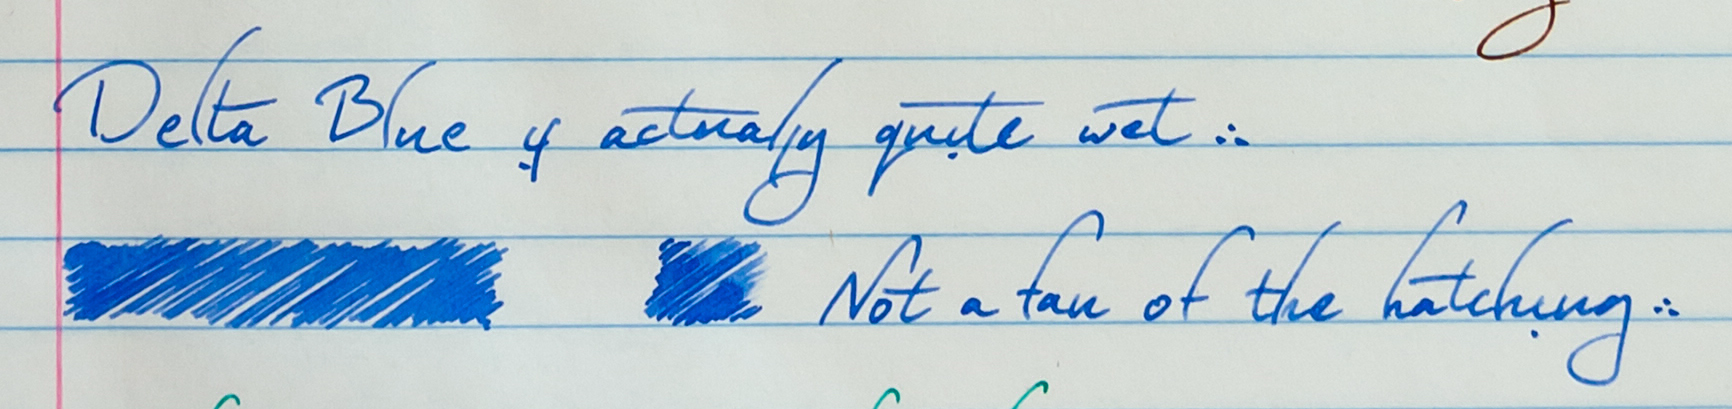 Delta Blue is actually quite wet ∴
Not a fan of the hatching ∴